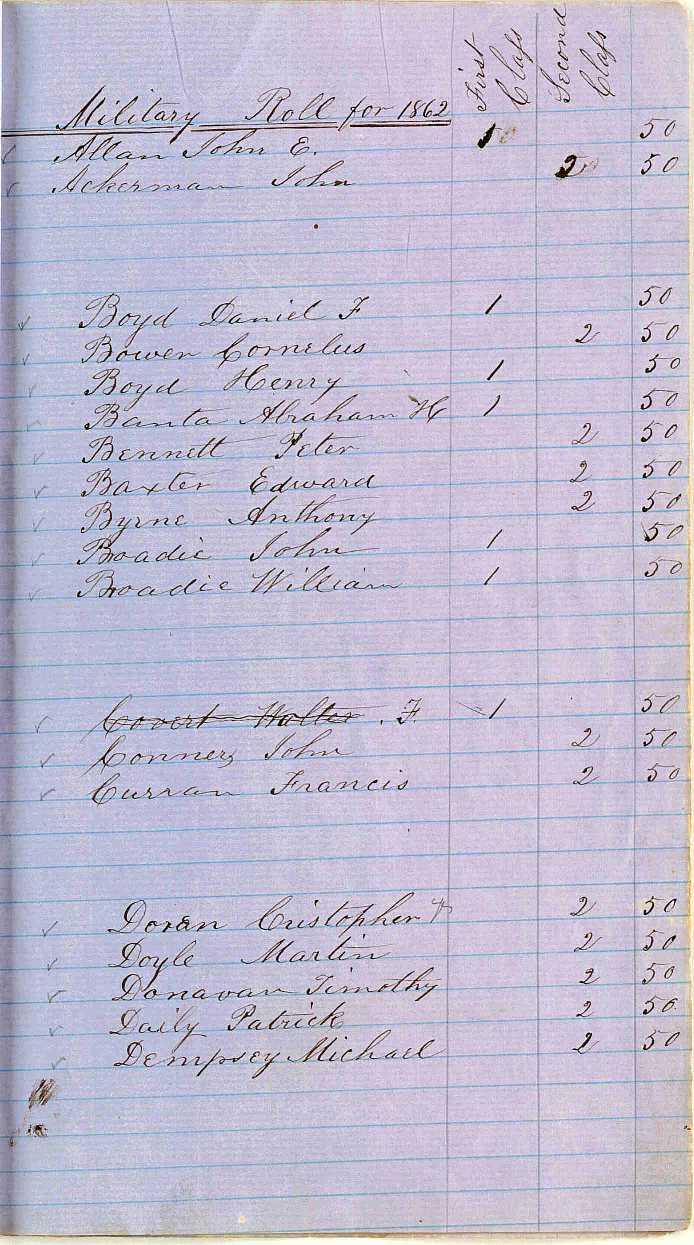 First Class Second Class
Military Roll for 1862
Allan John E. 1 50
Ackerman John 2 50
Boyd Daniel F 1 50
Bowen Cornelius 2 50
Boyd Henry 1 50
Banta Abraham H 1 50
Bennett Peter 2 50
Baxter Edward 2 50
Byrne Anthony 2 50
Broadie John 1 50
Broadie William 1 50
Covert Walter. F. 1 50
Conners John 2 50
Curran Francis 2 50
Doran Cristopher 2 50
Doyle Martin 2 50
Donavan Timothy 2 50
Daily Patrick 2 50.
Dempsey Michael 2 50